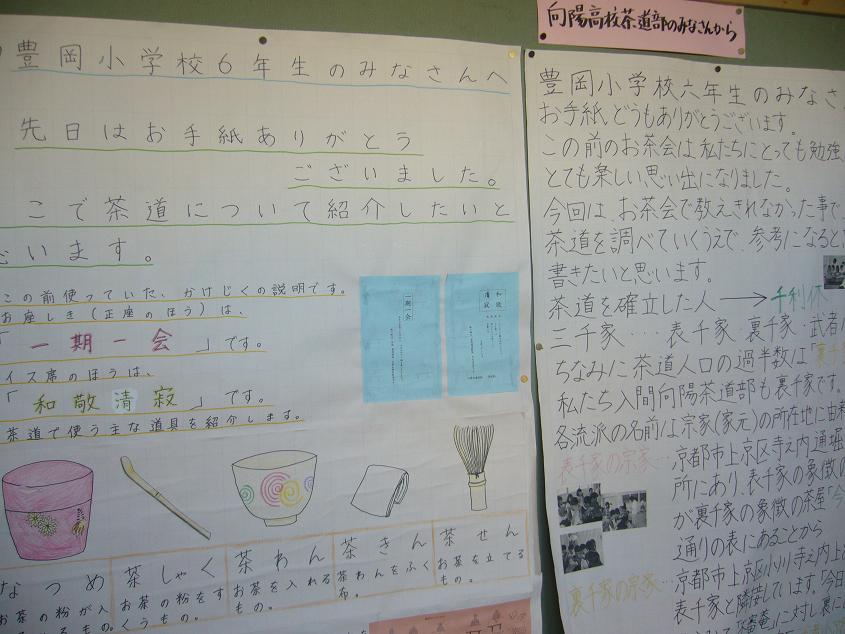 向陽高校茶道部のみなさんから
豊岡小学校6年生のみなさんへ
先日はお手紙ありがとう
ございました。
こで茶道について紹介したいと
います。
この前使っていた、かけじくの説明です。
お座しき(正座のほう)は、
「一期一会」です。
イス席のほうは、
「和敬清寂」です。
茶道で使う主な道具を紹介します。
一期一会
和敬清寂
なつめ
お茶の粉が入
もの。
茶しゃく
お茶の粉をす
くうもの。
茶わん
お茶を入れる
もの。
茶きん
茶わんをふく
布。
茶せん
お茶を立てる
もの。
豊岡小学校六年生のみなさ
お手紙どうもありがとうございます。
この前のお茶会は私たちにとっても勉強
とても楽しい思い出になりました。
今回は、お茶会で教えきれなかった事で、
茶道を調べていくうえで、参考になると
書きたいと思います。
茶道を確立した人→千利休
三千家・・・表千家・裏千家・武者
ちなみに茶道人口の過半数は「裏千
私たち入間向陽茶道部も裏千家です。
各流派の名前は宗家(家元)の所在地に由
表千家の宗家…京都市上京区寺之内通堀
所にあり、表千家の象徴の
が裏千家の象徴の茶屋「今
通りの表にあることから
裏千家の宗家…京都市上京区小川寺之内上
表千家と隣接しています。「今日
庵」に対し裏に